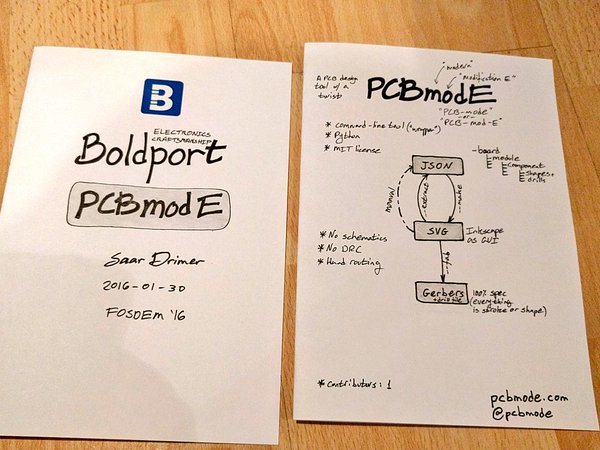 B
ELECTRONICS
CRAFTSMANSHIP
Boldport
PCBmodE
Saar Drimer
2016-01-30
FOSDEM '16
"modern"
"modification E"
A PCB design
tool w/ a
twist
PCBmodE
"PCB-mode"
-or-
"PCB-mod-E"
* command-line tool ("wrapper")
* Python
* MIT license
JSON
-board
module
component
shapes+
drills
manual
--extract
--make
SVG
Inkscape
as GUI
* No schematics
* No DRC
* Hand routing
--fab
Gerbers
+drill file
100% spec
(everything
is stroke or shape)
* Contributors: 1
pcbmode.com
@pcbmode